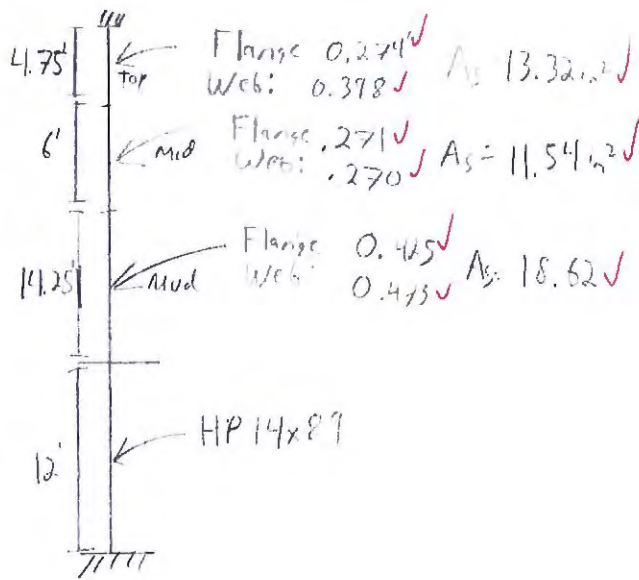 4.75'
Top
Flange 0.274" ✓
Web: 0.398 ✓
As = 13.32 in² ✓
6'
Mid
Flange .271 ✓
Web: .270 ✓
As = 11.54 in² ✓
14.25'
Mud
Flange 0.425 ✓
Web: 0.473 ✓
As = 18.62 ✓
12'
HP 14x89